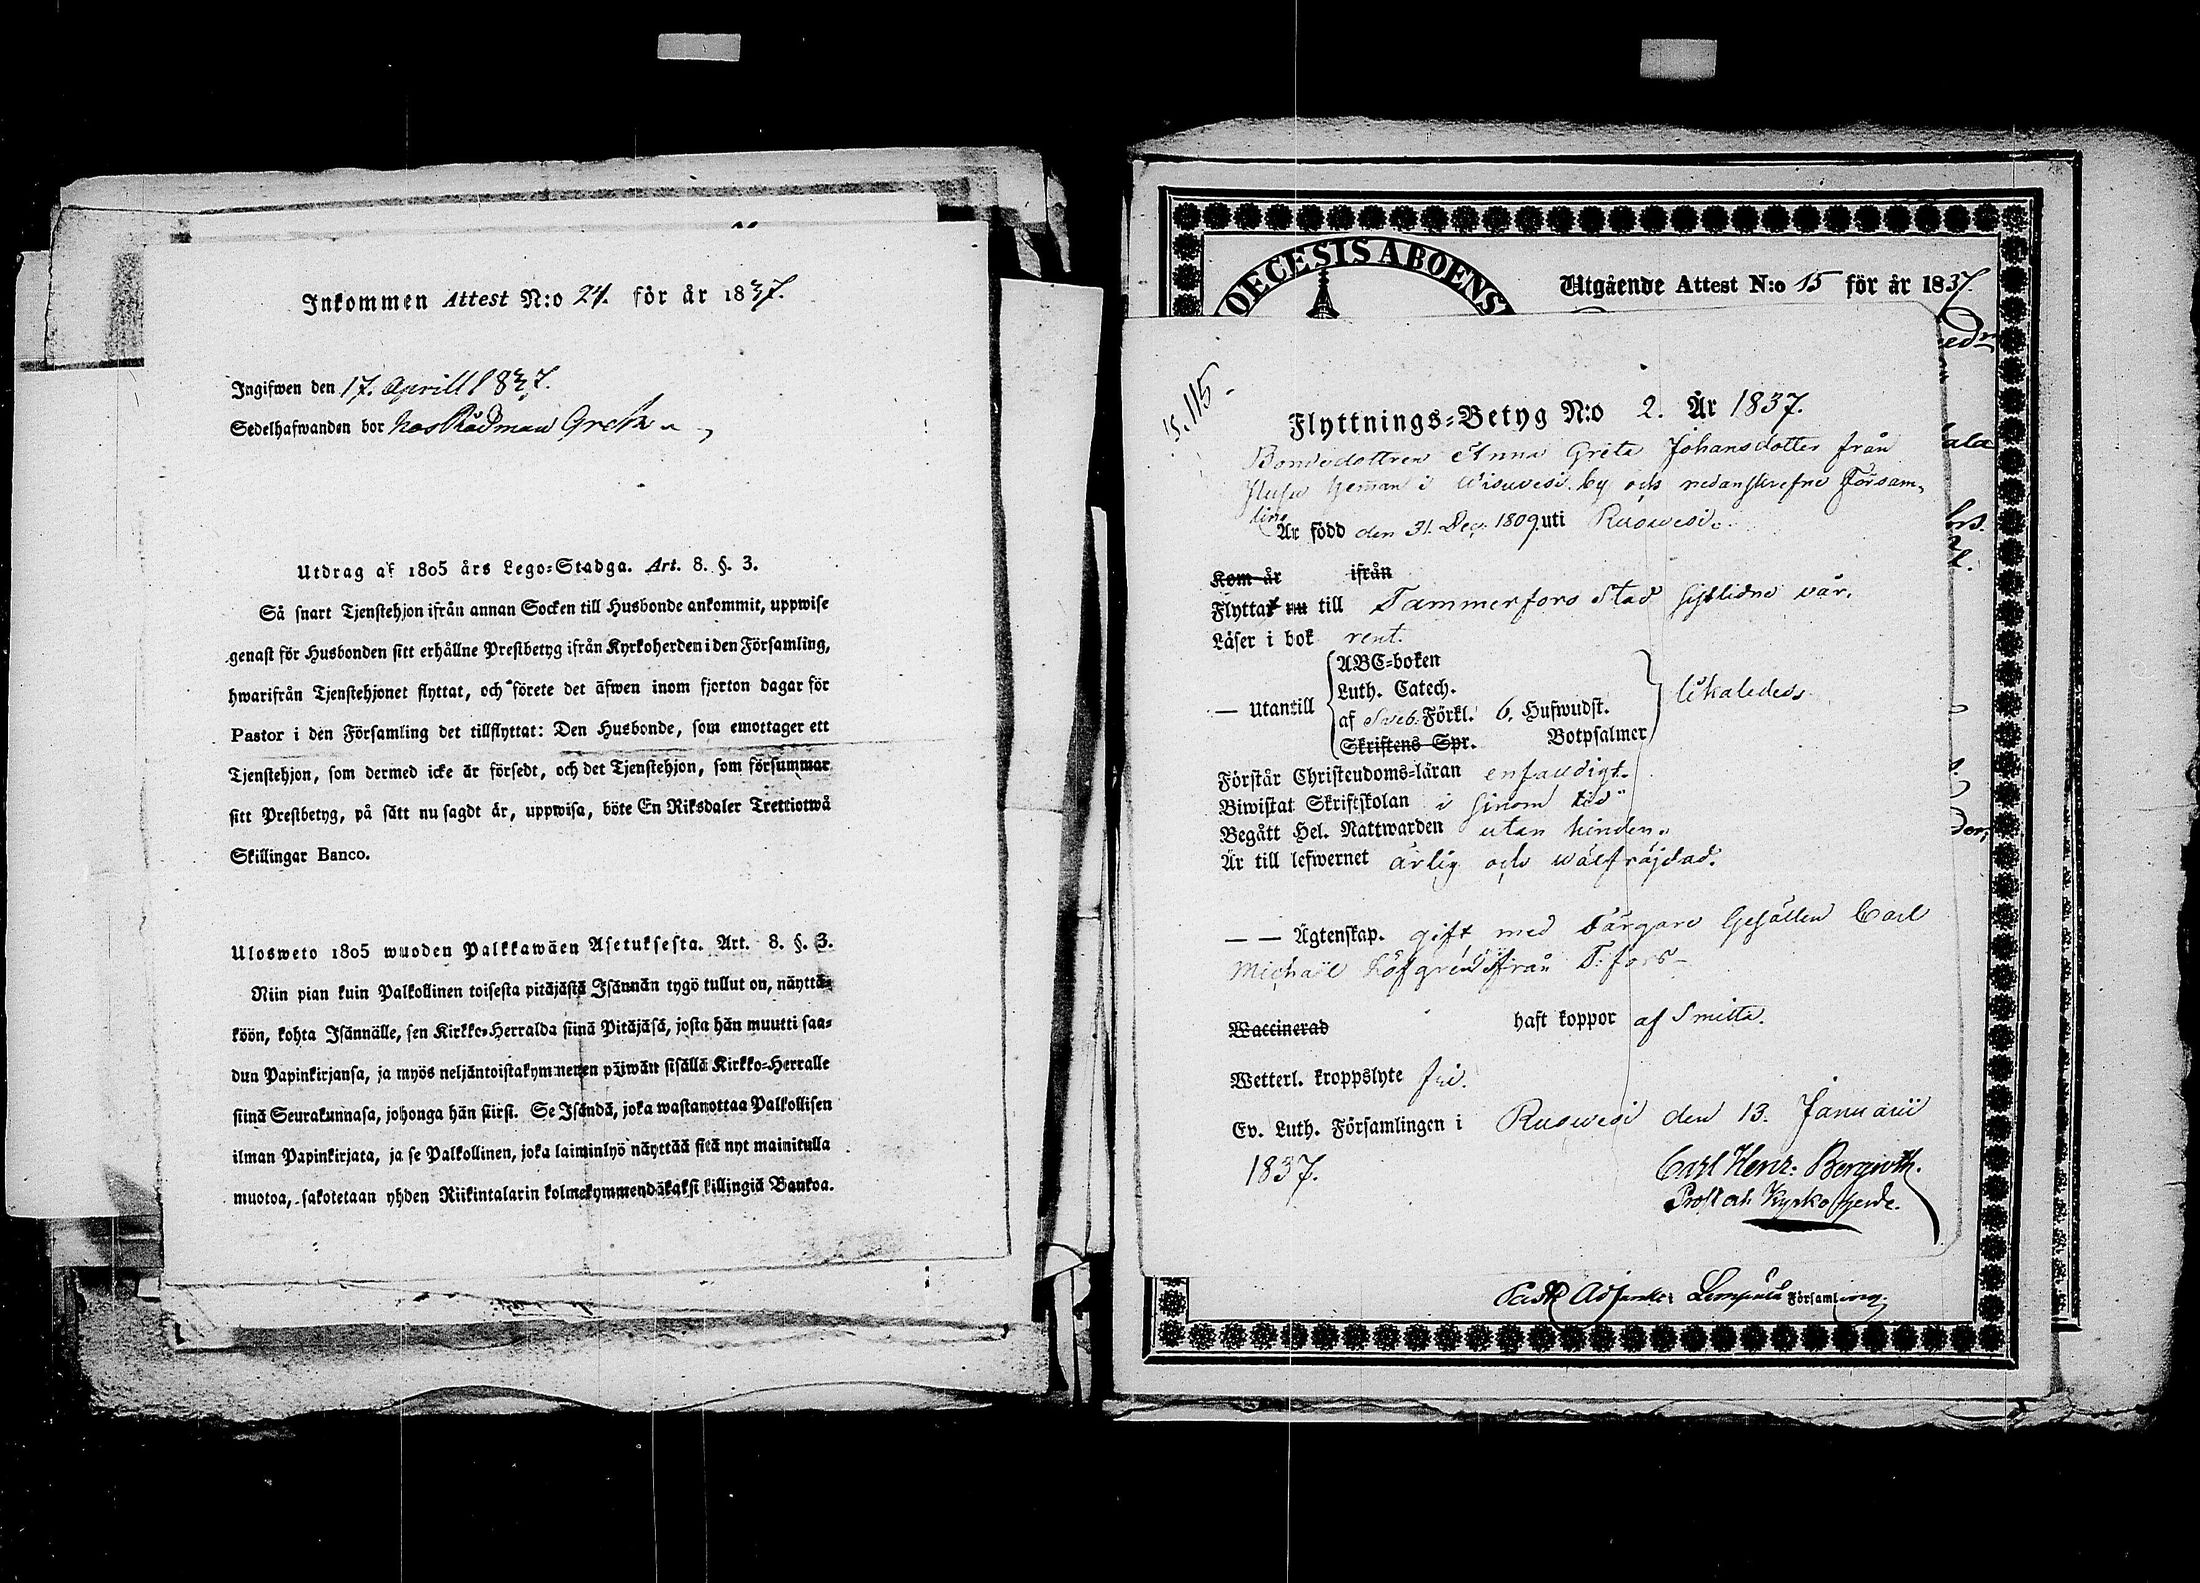 Inkommen Attest N:o 24. för år 1837.
Ingifwen den 17. Aprill 1837.
Sedelhafwanden bor hos Rådman
Utdrag af 1805 års Lego-Stadga. Art. 8. §. 3.
Så snart Tjenstehjon ifrån annan Socken till Husbonde ankommit, uppwise
genast för Husbonden sitt erhållne Prestbetyg ifrån Kyrkoherden i den Församling,
hwarifrån Tjenstehjonet flyttat, och förete det äfwen inom fjorton dagar för
Pastor i den Församling det tillflyttat: Den Husbonde, som emottager ett
Tjenstehjon, som dermed icke är försedt, och det Tjenstehjon, som försummar
sitt Prestbetyg, på sätt nu sagdt är, uppwisa, böte En Riksdaler Trettiotwå
Skillingar Banco.
Ulosweto 1805 wuoden Palkkawäen Asetuksesta. Art. 8. §. 3.
Niin pian kuin Palkollinen toisesta pitäjästä Isännän tygö tullut on, näyttä-
köön, kohta Isännälle, sen Kirkko-Herralda siinä Pitäjäsä, josta hän muutti saa-
dun Papinkirjansa, ja myös neljäntoistakymmenen päiwän sisällä Kirkko-Herralle
siinä Seurakunnasa, johonga hän siirsi. Se Isändä, joka wastanottaa Palkollisen
ilman Papinkirjata, ja se Palkollinen, joka laiminlyö näyttää sitä nyt mainitulla
muotoa, sakotetaan yhden Riikintalarin kolmekymmendäkaksi killingiä Bankoa.
DIOECESIS ABOENS
Utgående Attest N:o 15 för år 1837
S. 115
Flyttnings-Betyg N:o 2. År 1837.
Bondedottren Anna Greta Johansdotter från
i Wisuvesi by och nedanskrefne Försam-
ling
Är född den 31. Dec. 1809. uti Ruowesi.
Kom år ifrån
Flyttat nu till Tammerfors Stad sistlidne vår.
Läser i bok rent.
— utantill
ABC-boken
Luth. Catech.
af Sveb. Förkl. 6. Hufwudst.
Skriftens Spr. Botpsalmer
likaledes
Förstår Christendoms-läran enfaldigt.
Biwistat Skriftskolan i sinom tid
Begått Hel. Nattwarden utan hinder.
Är till lefwernet ärlig och wälfräjdad.
— — Ägtenskap. gift med Färgare Gesällen Carl
Michaël Löfgren ifrån T:fors
Waccinerad haft koppor af Smitta.
Wetterl. kroppslyte fri.
Ev. Luth. Församlingen i Ruowesi den 13. Januarii
1837.
Carl Henr: Bergroth.
Prost och Kyrkoherde.
Adjunkt i Lempälä Församling.